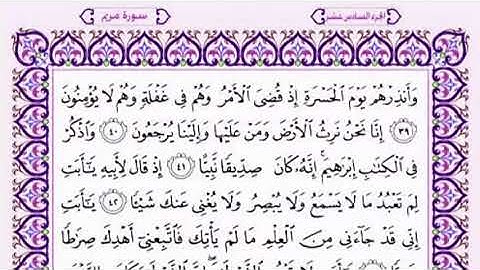 الجزء السادس عشر
سورة مريم
وَأَنذِرْهُمْ يَوْمَ ٱلْحَسْرَةِ إِذْ قُضِىَ ٱلْأَمْرُ وَهُمْ فِى غَفْلَةٍ وَهُمْ لَا يُؤْمِنُونَ
٣٩ إِنَّا نَحْنُ نَرِثُ ٱلْأَرْضَ وَمَنْ عَلَيْهَا وَإِلَيْنَا يُرْجَعُونَ ٤٠ وَٱذْكُرْ
فِى ٱلْكِتَٰبِ إِبْرَٰهِيمَ إِنَّهُۥ كَانَ صِدِّيقًا نَّبِيًّا ٤١ إِذْ قَالَ لِأَبِيهِ يَٰٓأَبَتِ
لِمَ تَعْبُدُ مَا لَا يَسْمَعُ وَلَا يُبْصِرُ وَلَا يُغْنِى عَنكَ شَيْـًٔا ٤٢ يَٰٓأَبَتِ
إِنِّى قَدْ جَآءَنِى مِنَ ٱلْعِلْمِ مَا لَمْ يَأْتِكَ فَٱتَّبِعْنِىٓ أَهْدِكَ صِرَٰطًا